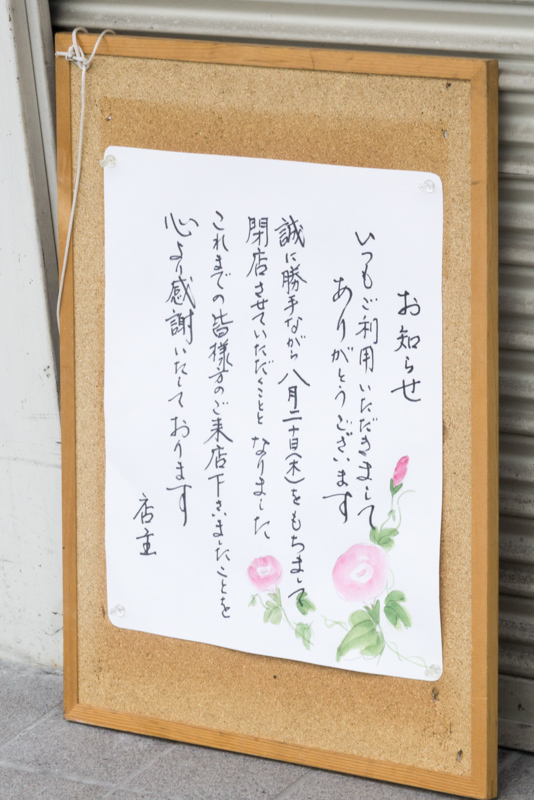 お知らせ
いつもご利用いただきまして
ありがとうございます
誠に勝手ながら八月二十日(木)をもちまして
閉店させていただくことと なりました、
これまでの皆様方のご来店下さいましたことを
心より感謝いたして おります
店主